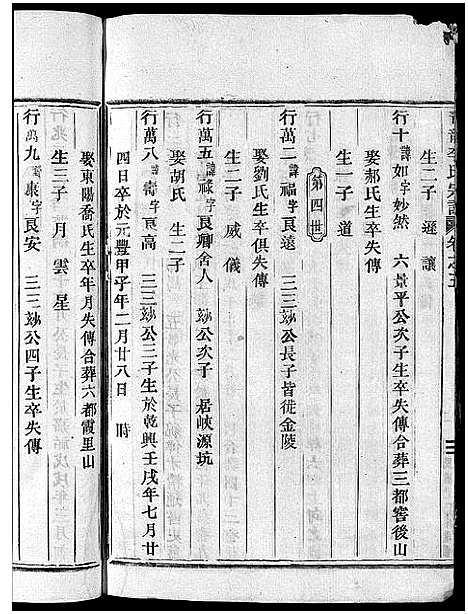 生二子 遜 讓
行十 諱如 字妙然 六 景平公次子生卒失傳合葬三都窖後山
娶郝氏生卒失傳
生一子 道
第四世
行萬二 諱福 字良遠 三 玅公長子皆徙金陵
娶劉氏生卒俱失傳
生二子 威 儀
行萬五 諱祿 字良卿舍人 三 玅公次子 居峽源坑
娶胡氏 生二子
行萬八 諱壽 字良高 三 三玅公三子生於乾興壬戌年七月廿
四日卒於元豐甲子年二月廿八日 時
娶東陽喬氏生卒年月失傳合葬六都霞里山
生三子 月 雲 星
行萬九 諱康 字良安 三 三玅公四子生卒失傳